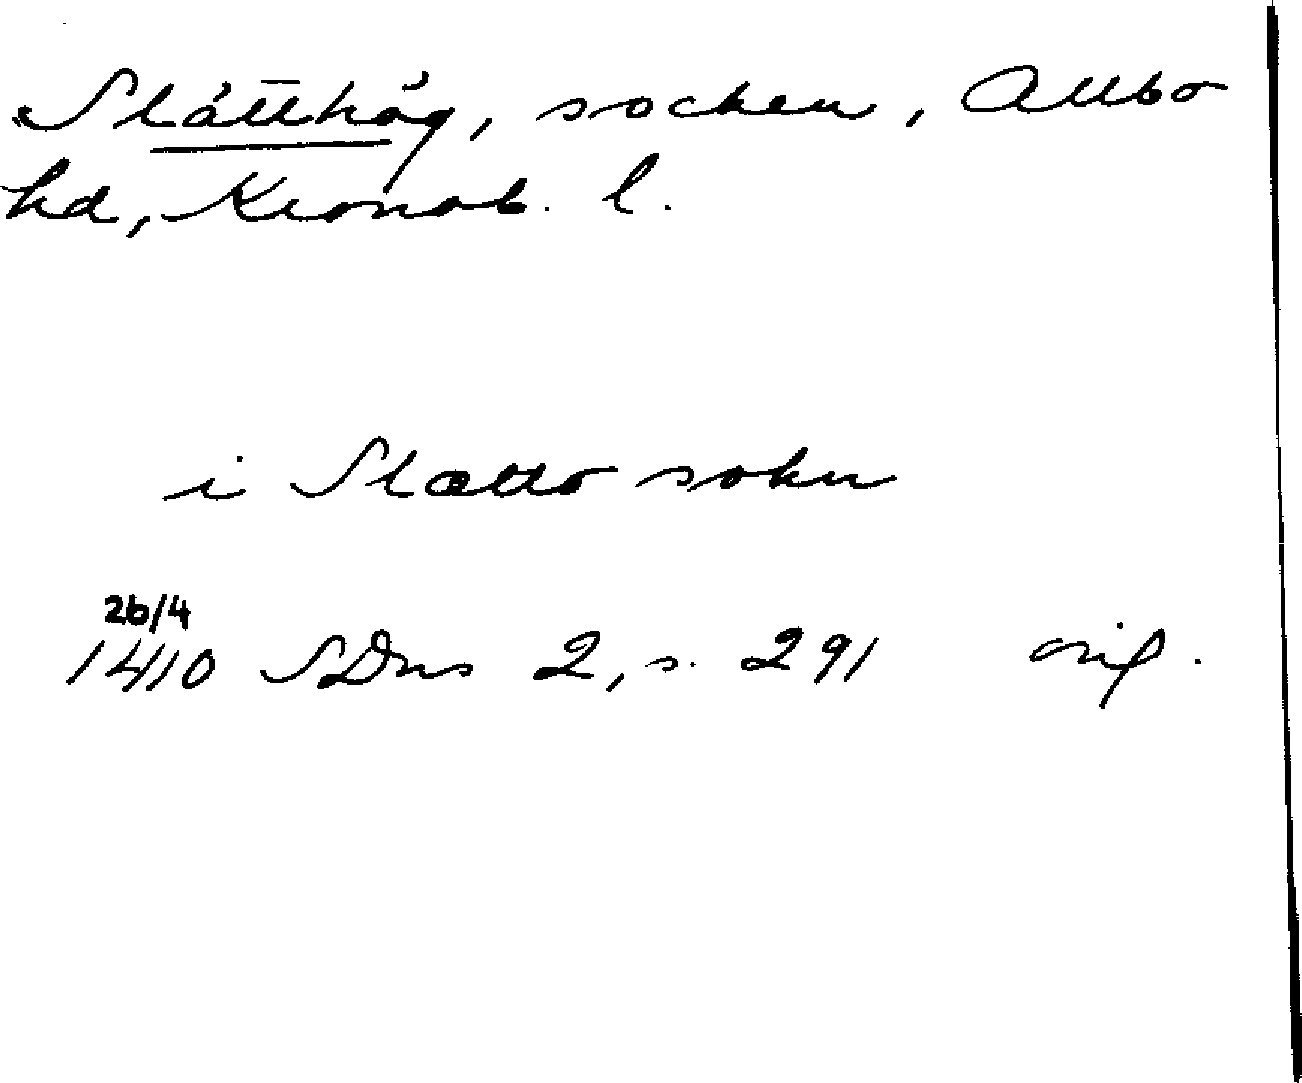 Slätthög, socken, Allbo
hd, Kronob. l.
i Slætto sokn
26/4
1410 SDns 2, s. 291 orig.